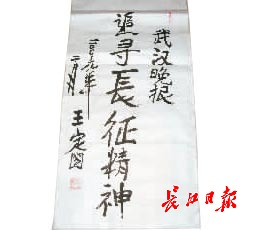 武汉晚报
追寻長征精神
二〇〇六年
二月
王定国
长江日报